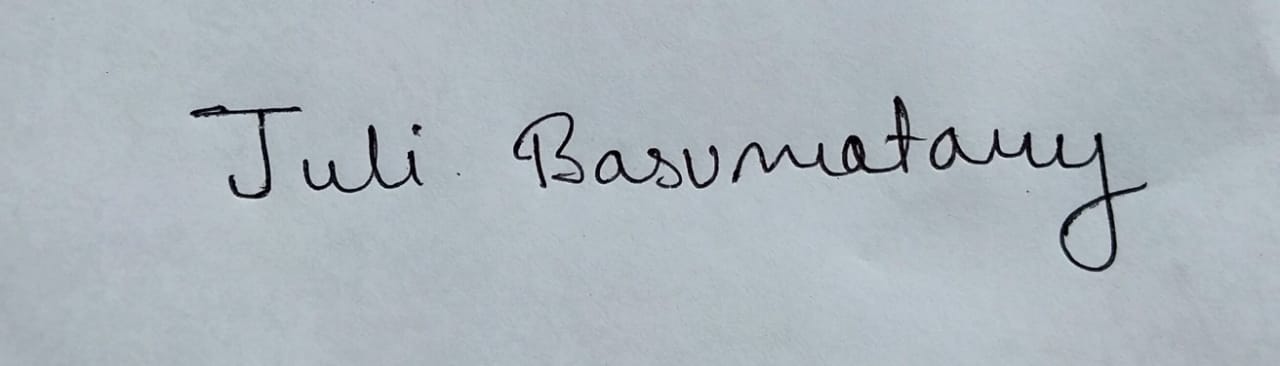 Juli Basumatary